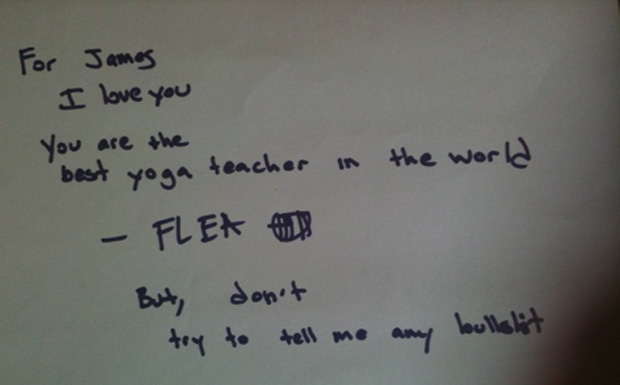 For James
I love you
You are the
best yoga teacher in the world
- FLEA
But, don't
try to tell me any bullshit